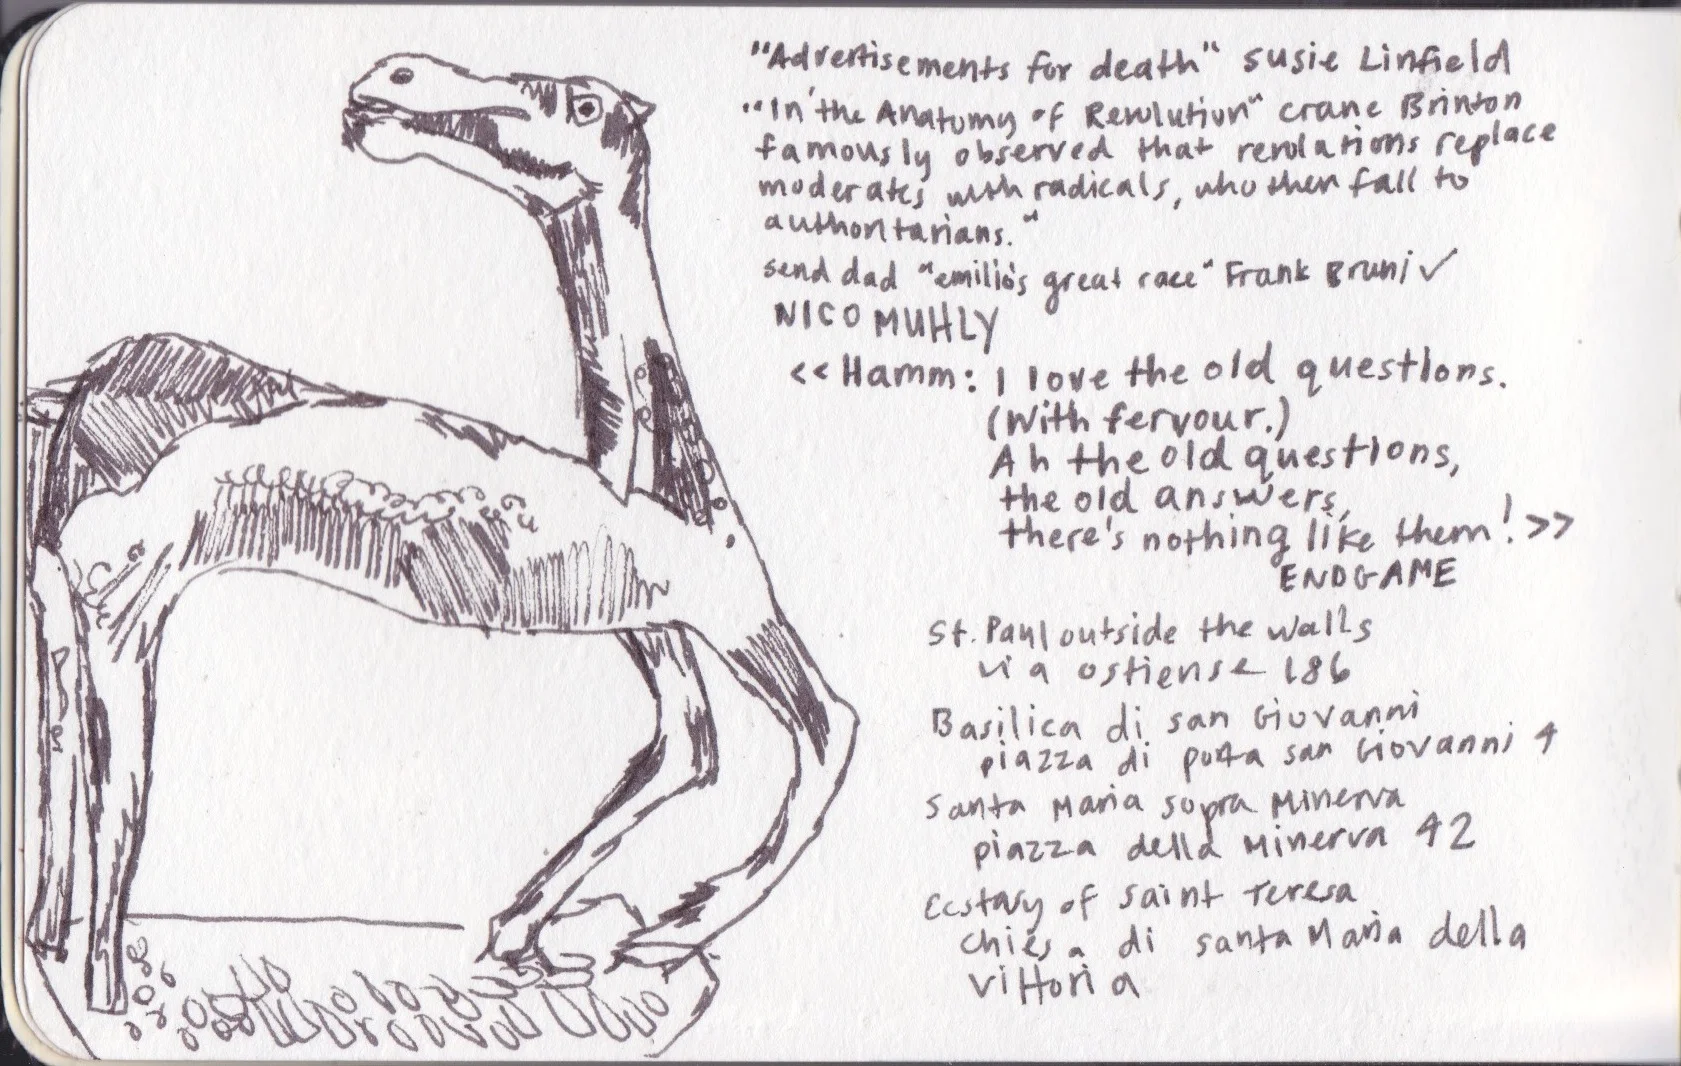 "Advertisements for death" Susie Linfield
"In the Anatomy of Revolution" Crane Brinton
famously observed that revolutions replace
moderates with radicals, who then fall to
authoritarians."
send dad "emilio's great race" Frank Bruni ✓
NICO MUHLY
<< Hamm: I love the old questions.
(With fervour.)
Ah the old questions,
the old answers,
there's nothing like them! >>
ENDGAME
St. Paul outside the walls
via ostiense 186
Basilica di san Giovanni
piazza di porta san Giovanni 4
Santa Maria sopra Minerva
piazza della Minerva 42
Ecstasy of Saint Teresa
chiesa di santa Maria della
vittoria